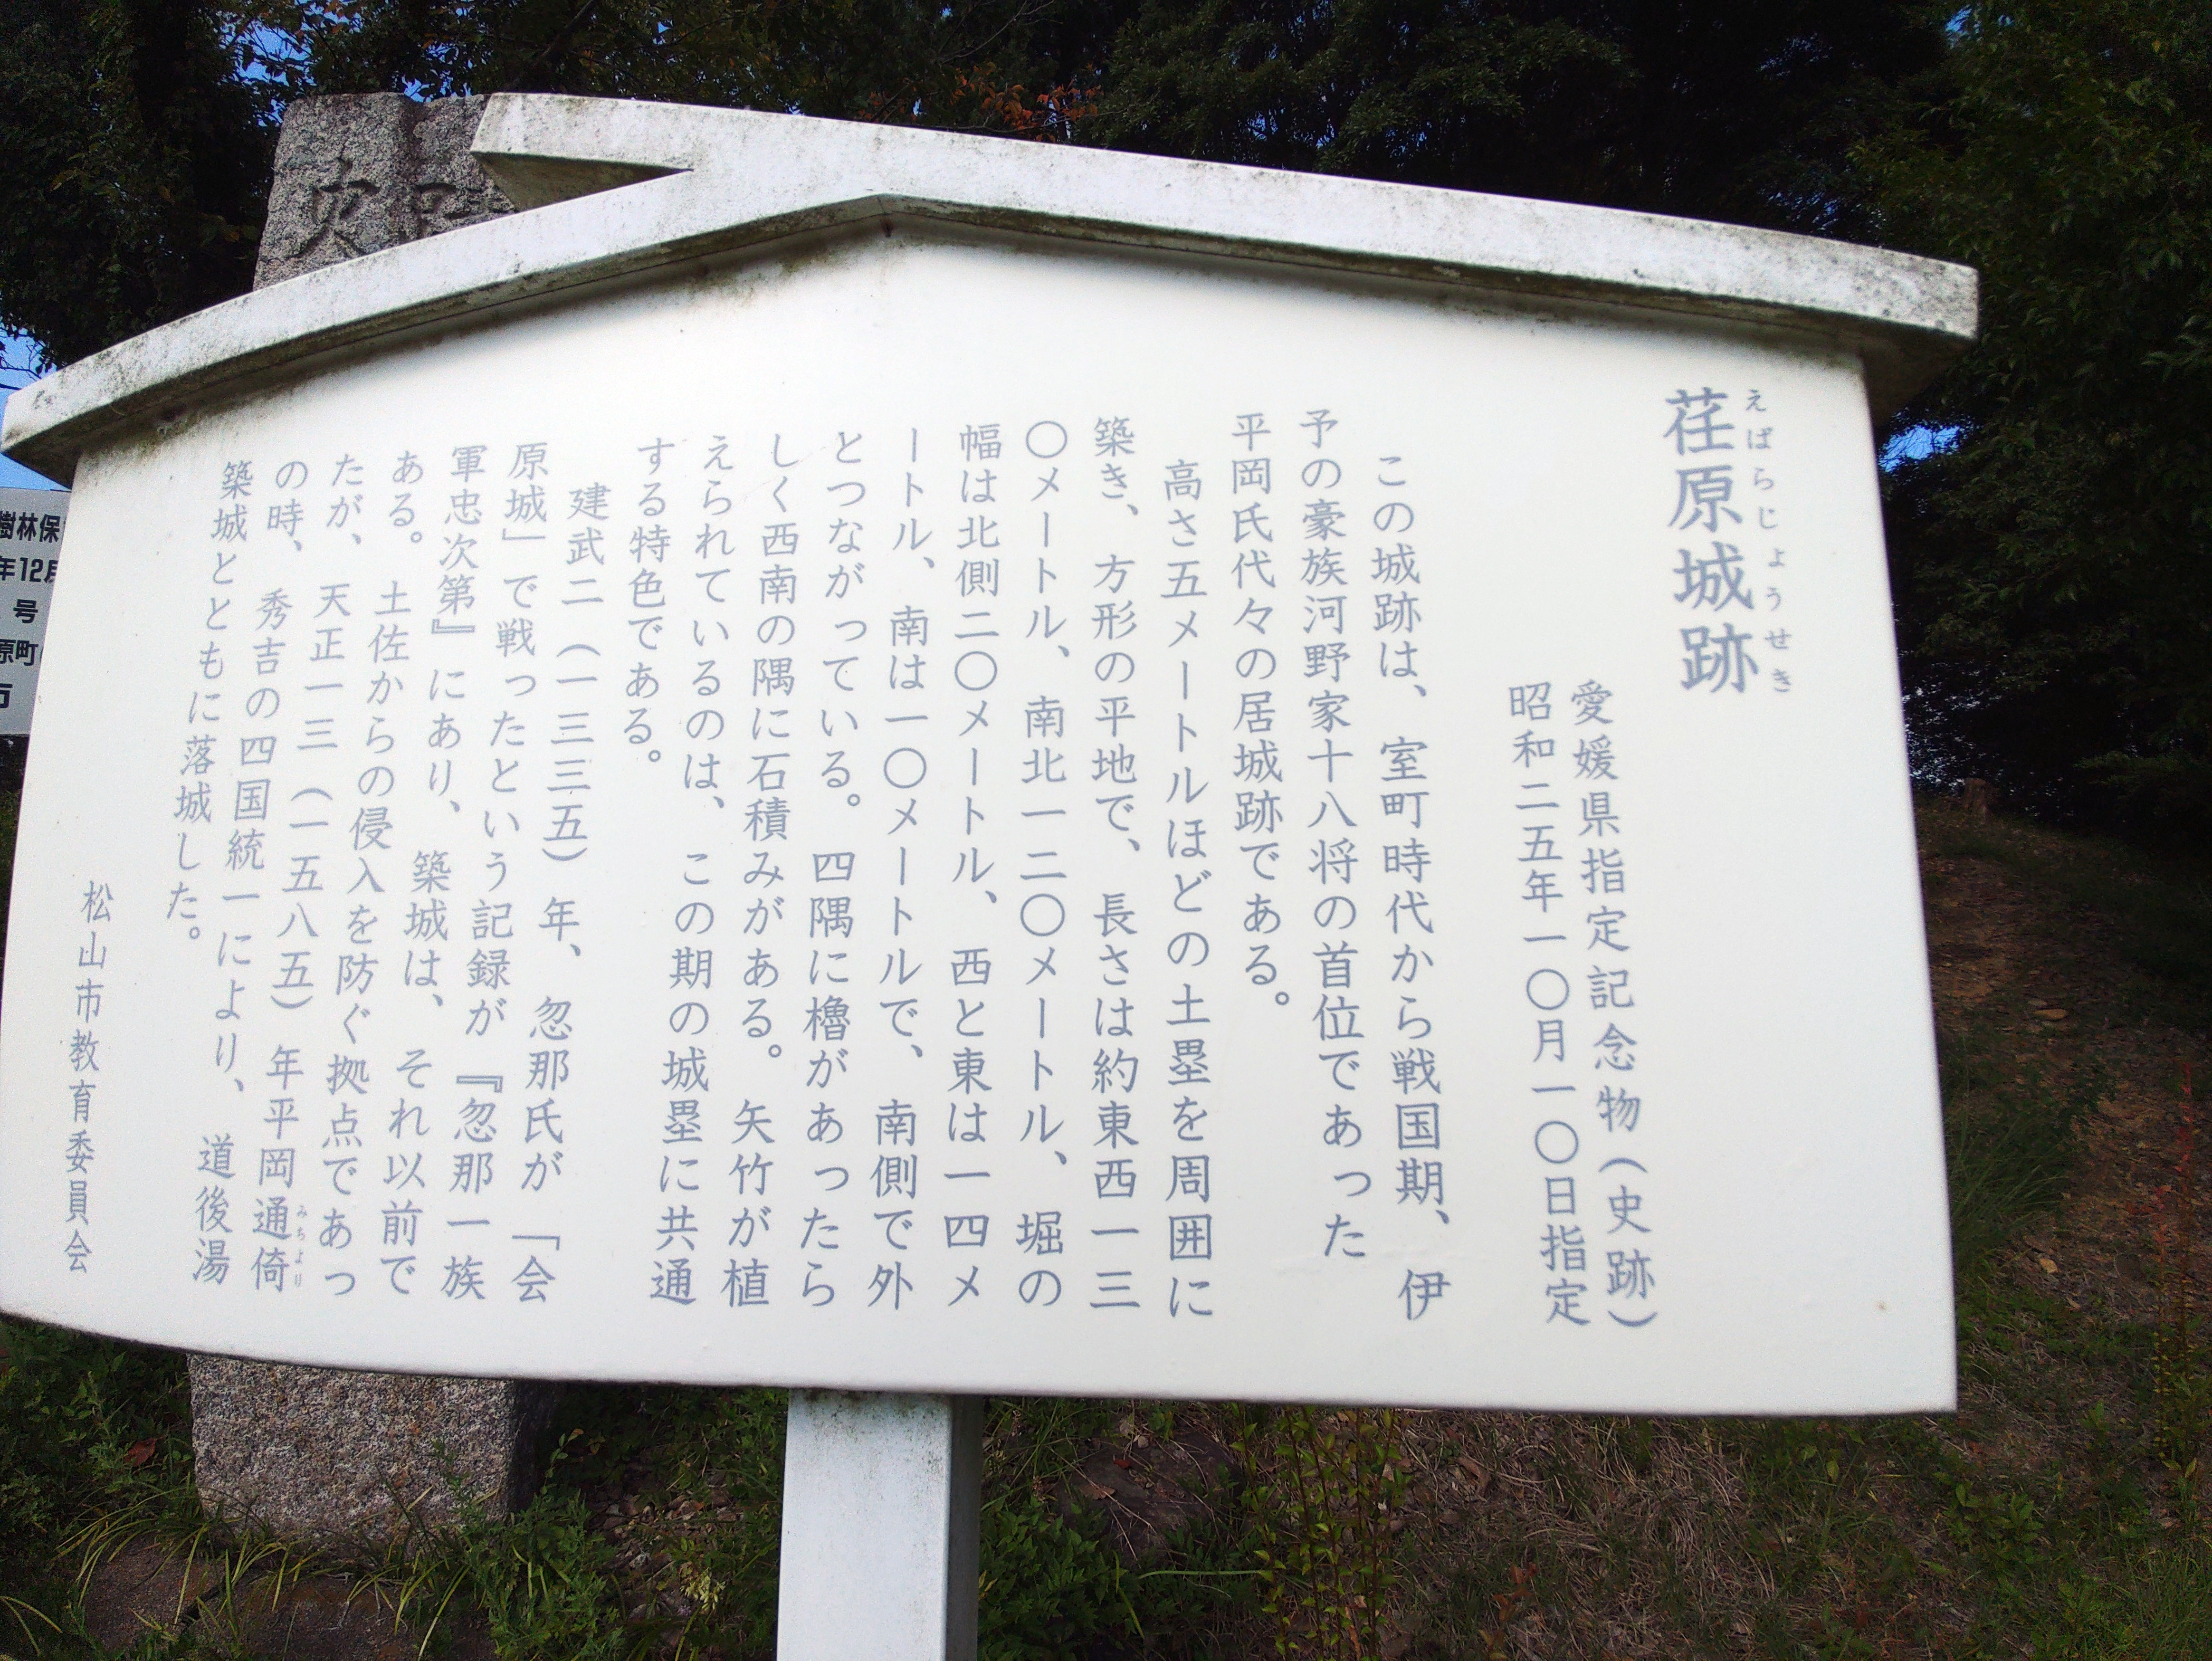 荏原城跡
えばらじょうせき
愛媛県指定記念物(史跡)
昭和二五年一〇月一〇日指定
この城跡は、室町時代から戦国期、伊
予の豪族河野家十八将の首位であった
平岡氏代々の居城跡である。
高さ五メートルほどの土塁を周囲に
築き、方形の平地で、長さは約東西一三
〇メートル、南北一二〇メートル、堀の
幅は北側二〇メートル、西と東は一四メ
ートル、南は一〇メートルで、南側で外
とつながっている。四隅に櫓があったら
しく西南の隅に石積みがある。矢竹が植
えられているのは、この期の城塁に共通
する特色である。
建武二(一三三五)年、忽那氏が「会
原城」で戦ったという記録が『忽那一族
軍忠次第』にあり、築城は、それ以前で
ある。土佐からの侵入を防ぐ拠点であっ
たが、天正一三(一五八五)年平岡通倚
みちより
の時、秀吉の四国統一により、道後湯
築城とともに落城した。
松山市教育委員会
樹林保
年12月
号
原町
市